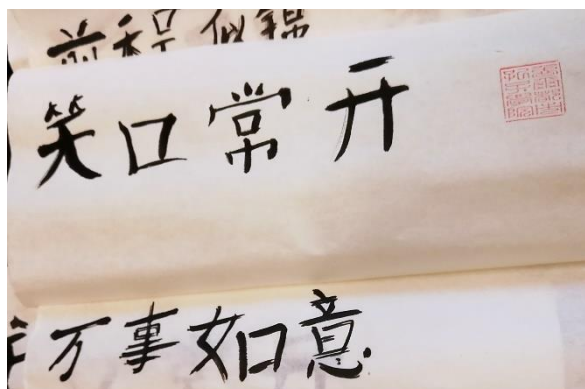 前程似锦
笑口常开
万事如意